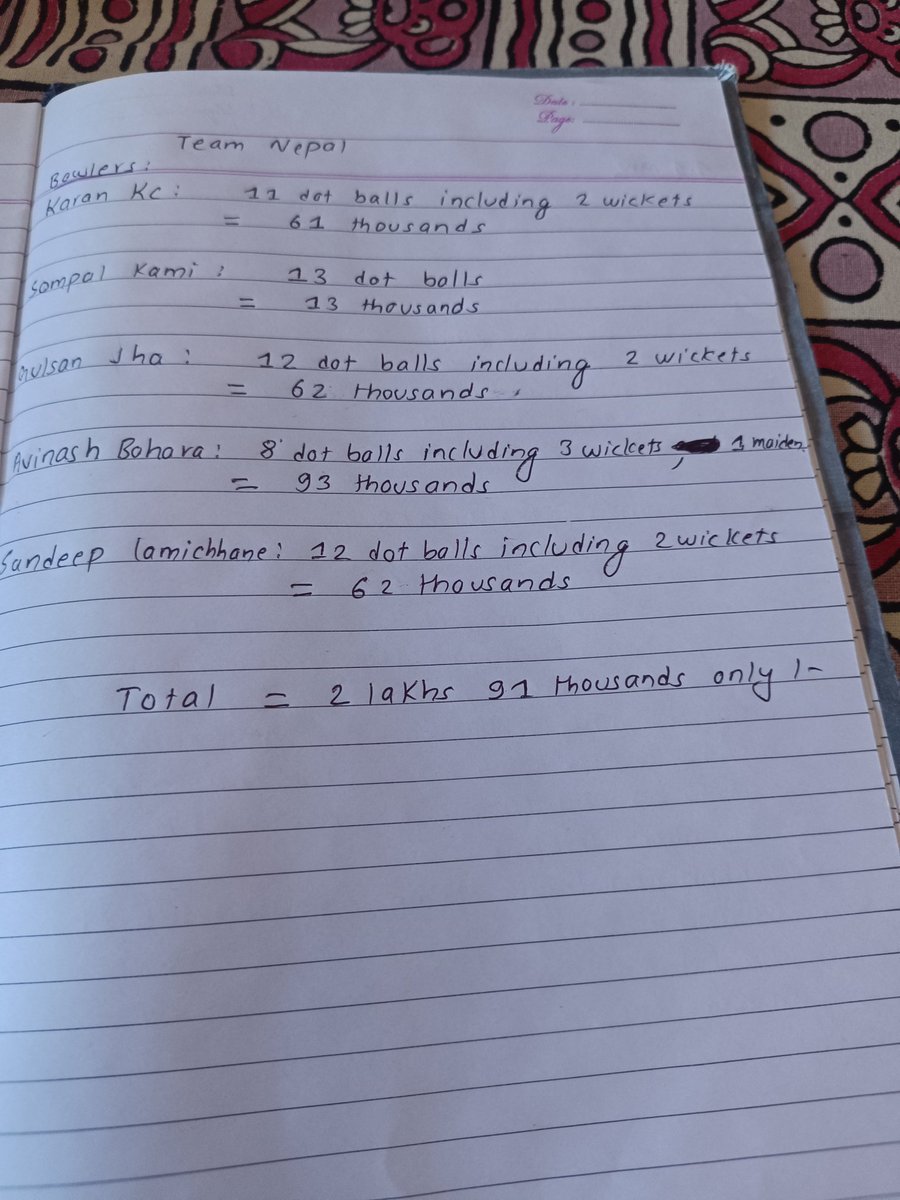 Date:
Page:
Team Nepal
Bowlers:
Karan Kc: 11 dot balls including 2 wickets
= 61 thousands
Sompal Kami: 13 dot balls
= 13 thousands
Gulsan Jha: 12 dot balls including 2 wickets
= 62 thousands
Avinash Bohora: 8 dot balls including 3 wickets, 1 maiden
= 93 thousands
Sandeep lamichhane: 12 dot balls including 2 wickets
= 62 thousands
Total = 2 lakhs 91 thousands only /-